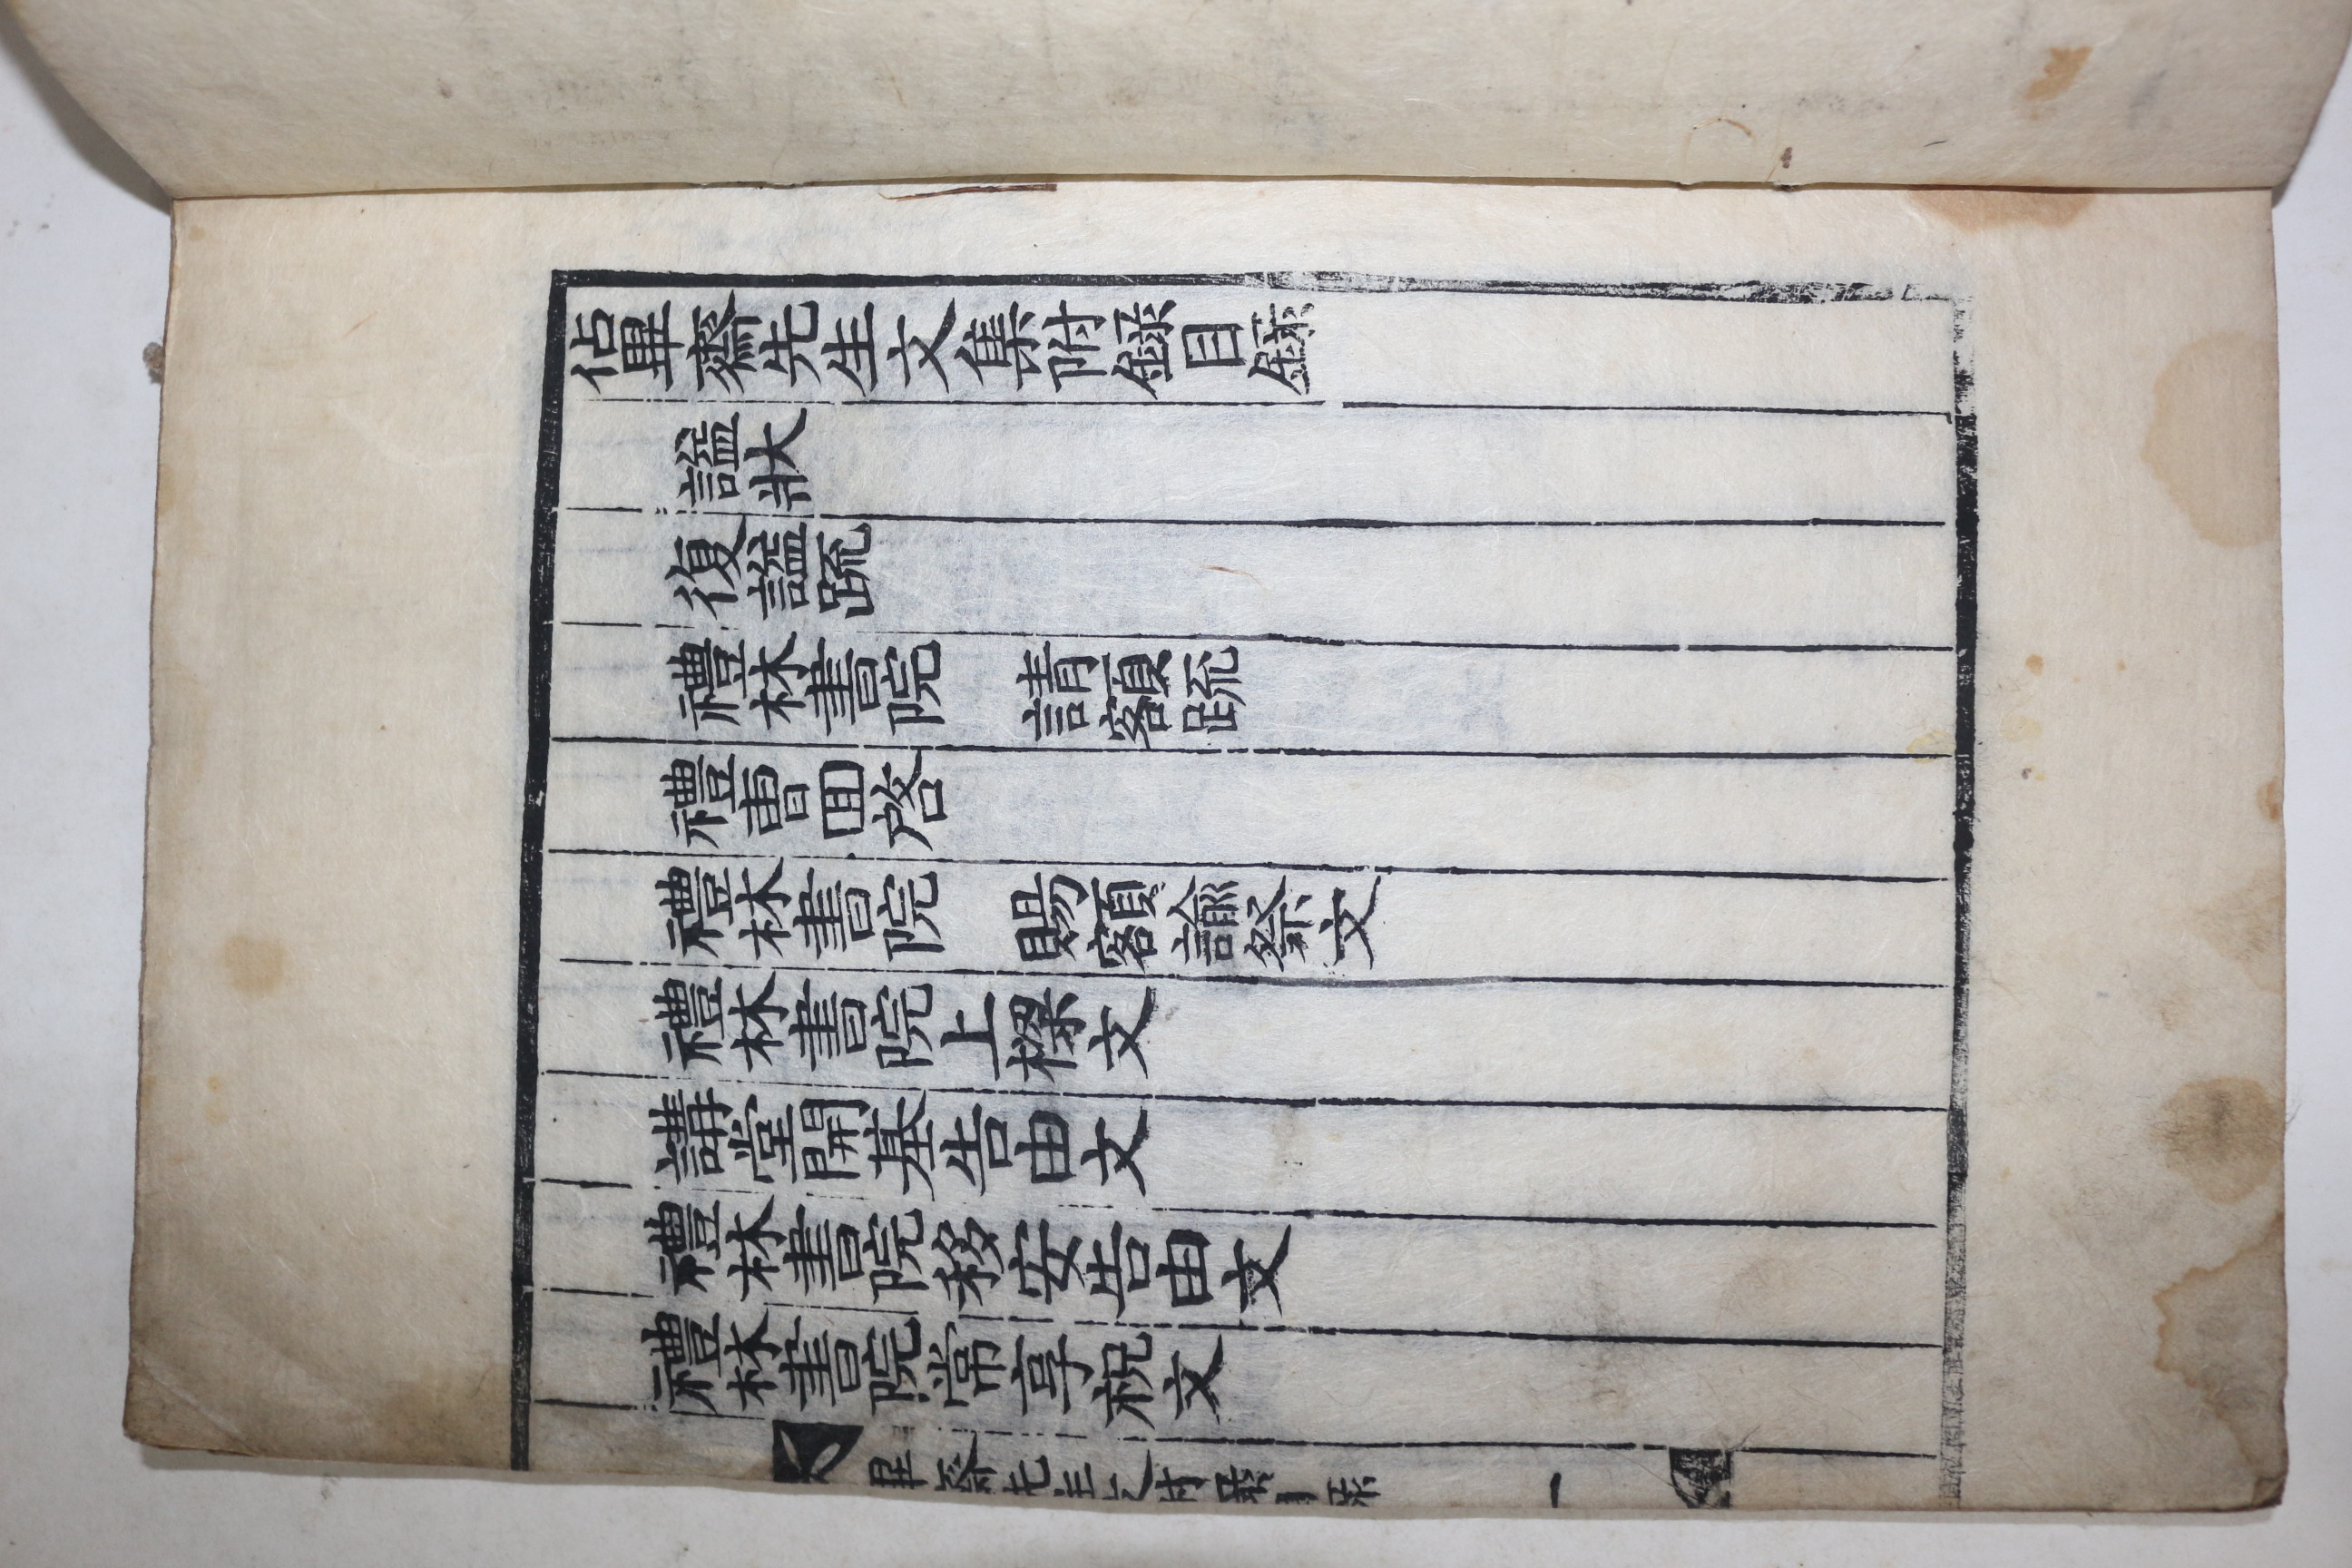 佔畢齋先生文集附錄目錄
謚狀
復謚䟽
禮林書院 請額䟽
禮曹回啓
禮林書院 賜額諭祭文
禮林書院上樑文
講堂開基告由文
禮林書院移安告由文
禮林書院常享祝文
畢齋先生文附錄目錄 一